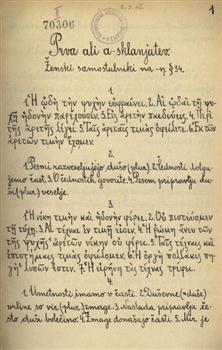 70306
1
Prva ali a-sklanjatev.
Ženski samostalniki na -η §34.
1
1. Ἡ ᾠδὴ τὴν ψυχὴν εὐφραίνει. 2. Αἱ ᾠδαὶ τῇ ψυ-
χῇ ἡδονὴν παρέχουσιν. 3. Εἰς ἀρετὴν παιδεύεις. 4. Περὶ
τῆς ἀρετῆς λέγει. 5. Ταῖς ἀρεταῖς τιμὰς ὀφείλετε. 6. Ἐκ τῶν
ἀρετῶν τιμὴν ἔχομεν.
2
1. Pesmi razveseljujejo dušo (plur.). 2. Čednosti dolgu-
jemo čast. 3. O čednostih govorite. 4. Pesem pripravlja du-
ši (plur.) veselje.
3
1. Ἡ νίκη τιμὴν καὶ ἡδονὴν φέρει. 2. Οὐ πιστεύομεν
τῇ τύχῃ. 3. Αἱ τέχναι ἐν τιμῇ εἰσιν. 4. Ἡ ῥώμη ἄνευ τῶν
τῆς ψυχῆς ἀρετῶν νίκην οὐ φέρει. 5. Ταῖς τέχναις καὶ
ἐπιστήμαις τιμὰς ὀφείλομεν. 6. Ἡ ὀργὴ πολλάκις πη-
γὴ λυπῶν ἐστιν. 7. Ἡ εἰρήνη τὰς τέχνας τρέφει.
4
1. Umetnosti imamo v časti. 2. Duševne (= duše)
vrline so vir (plur.) zmage. 3. Naslada pripravlja če-
sto duši bolečino. 4. Zmage donašajo časti. 5. Mir je